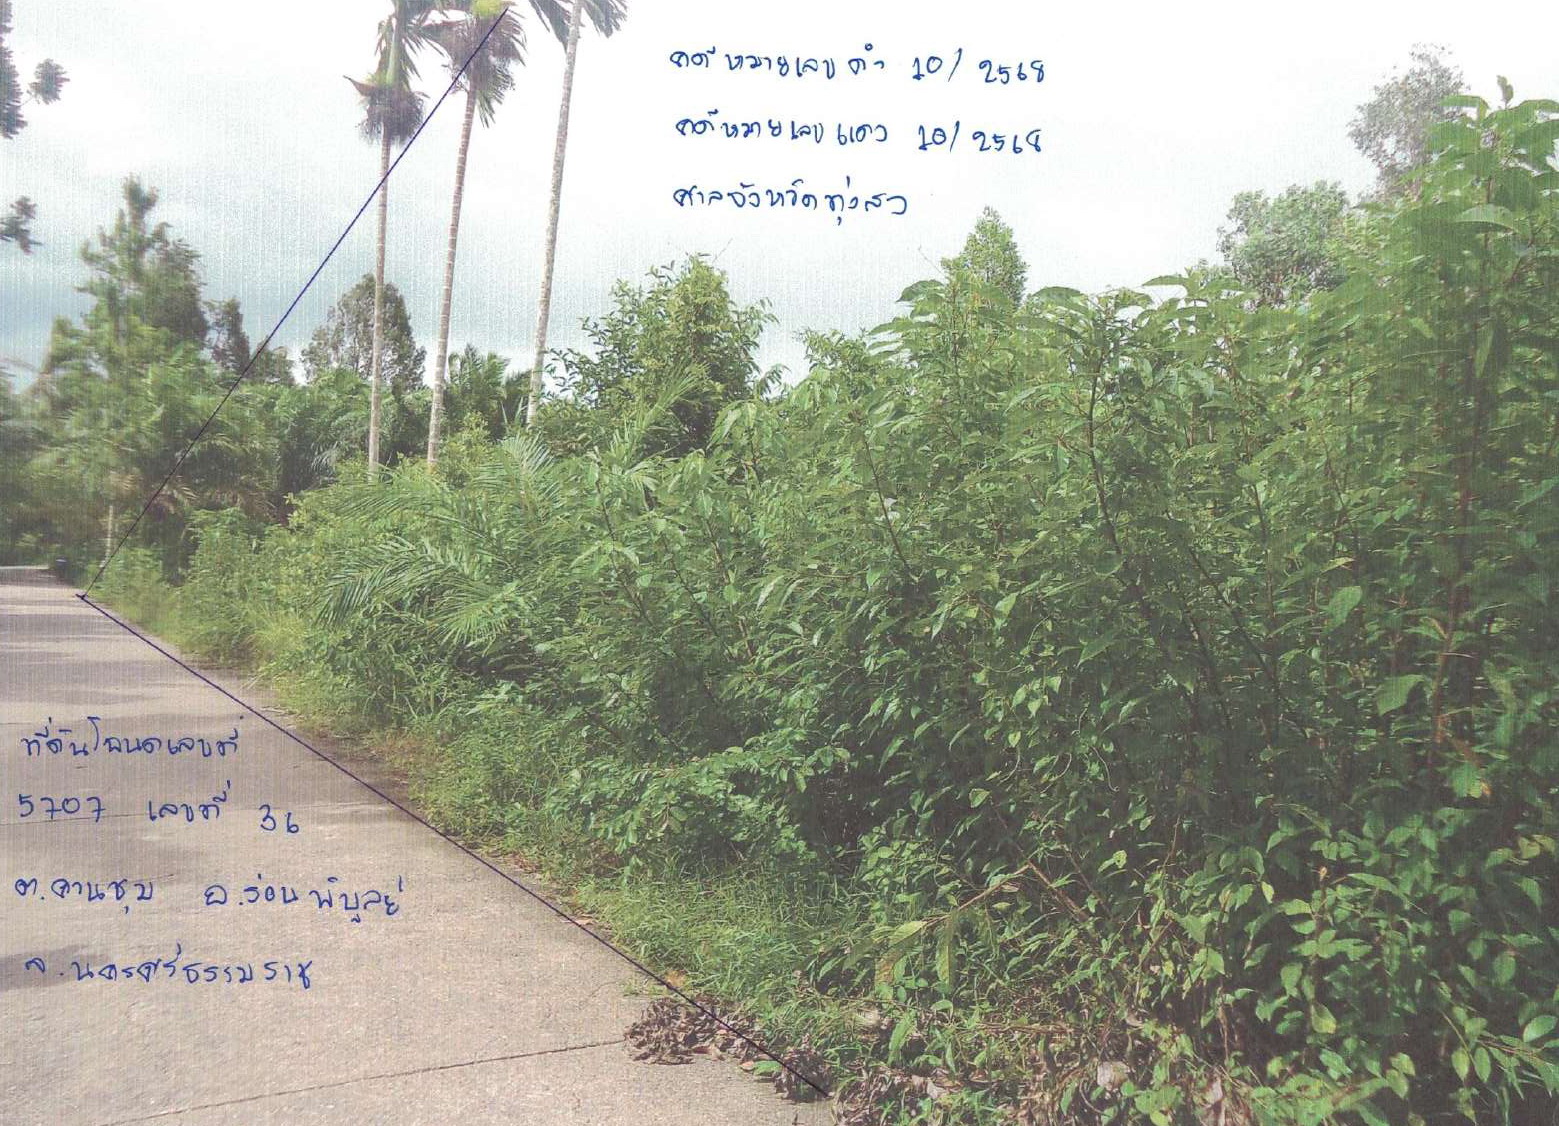 คดีหมายเลขดำ 10/2568
คดีหมายเลขแดง 10/2568
ศาลจังหวัดทุ่งสง
ที่ดินโฉนดเลขที่
5707 เลขที่ 36
ต.ควนชุม อ.ร่อนพิบูลย์
จ.นครศรีธรรมราช